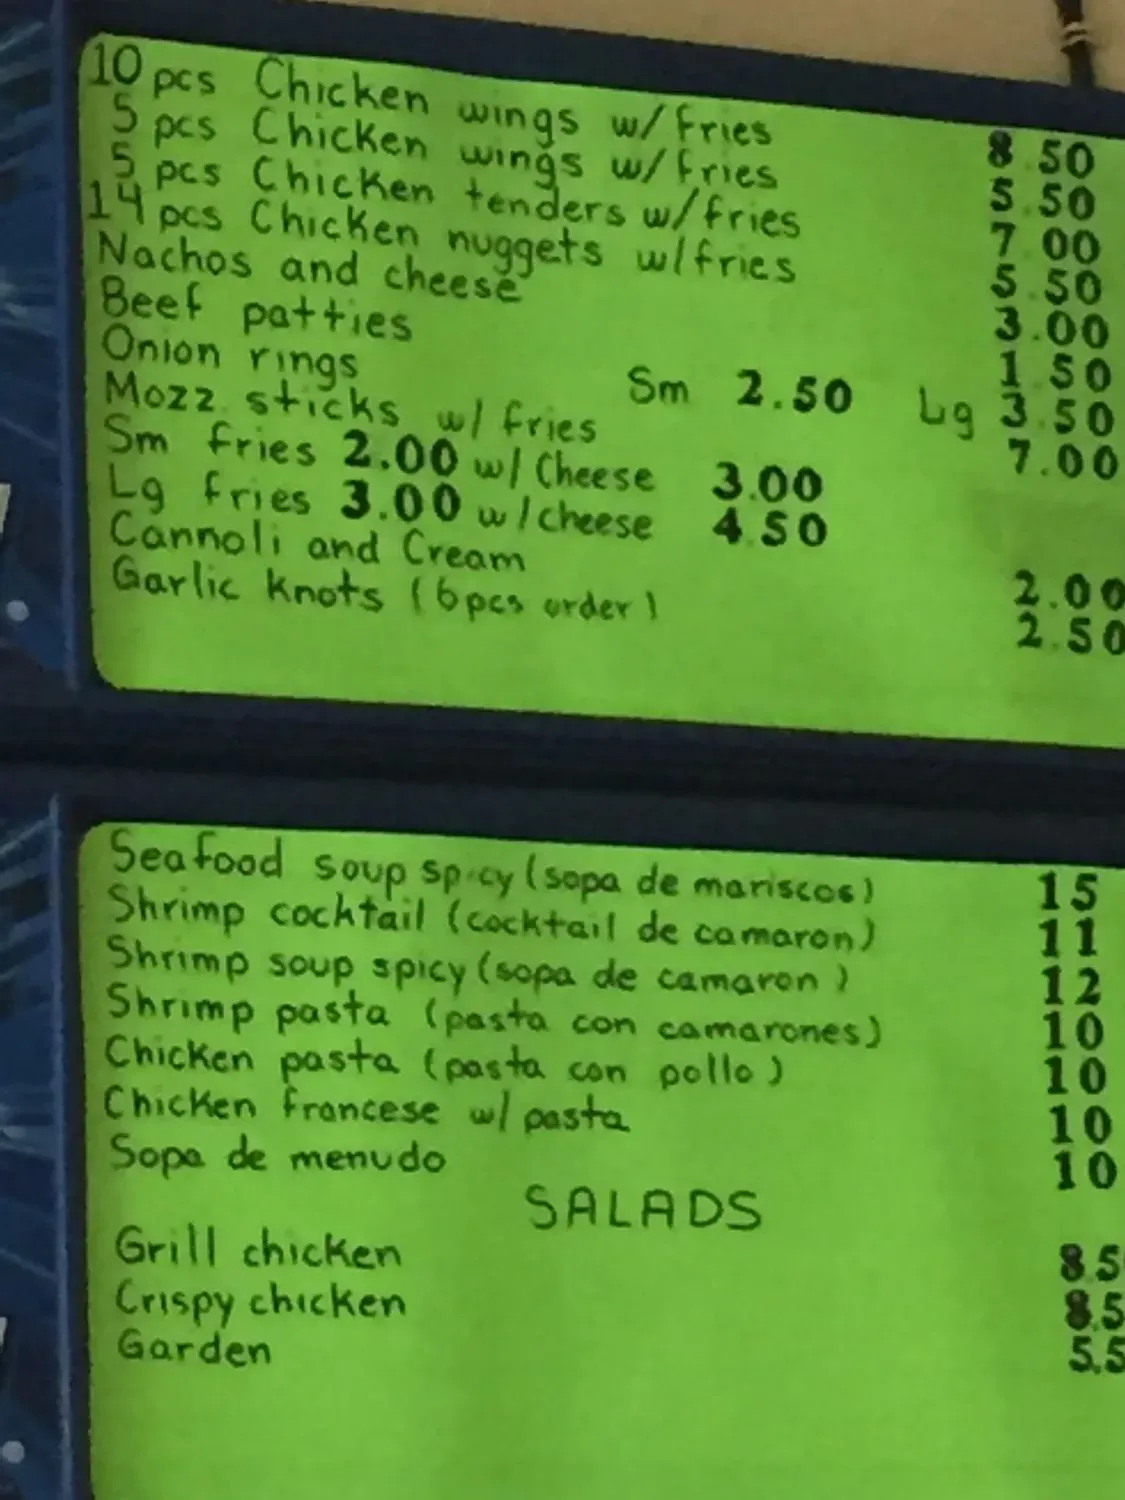 10 pcs Chicken wings w/ fries 8.50
5 pcs Chicken wings w/ fries 5.50
5 pcs Chicken tenders w/ fries 7.00
14 pcs Chicken nuggets w/ fries 5.50
Nachos and cheese 3.00
Beef patties 1.50
Onion rings Sm 2.50 Lg 3.50
Mozz. sticks w/ fries 7.00
Sm fries 2.00 w/ Cheese 3.00
Lg fries 3.00 w/ cheese 4.50
Cannoli and Cream 2.00
Garlic knots (6 pcs order) 2.50
Seafood soup spicy (sopa de mariscos) 15
Shrimp cocktail (cocktail de camaron) 11
Shrimp soup spicy (sopa de camaron) 12
Shrimp pasta (pasta con camarones) 10
Chicken pasta (pasta con pollo) 10
Chicken francese w/ pasta 10
Sopa de menudo 10
SALADS
Grill chicken 8.5
Crispy chicken 8.5
Garden 5.5